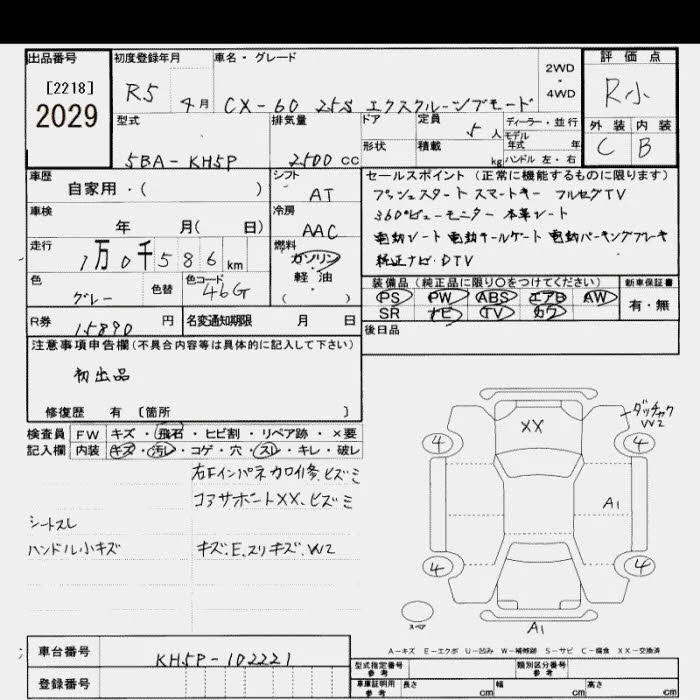 出品番号 初度登録年月 車名・グレード 2WD・4WD 評価点
[2218]
2029
R5 4月 CX-60 25S エクスクルーシブモード R小
型式 排気量 ドア 定員 5人 ディーラー・並行 外装 内装
モデル年式 年
5BA-KH5P 2500cc 形状 積載 kg ハンドル 左・右 C B
車歴 シフト セールスポイント(正常に機能するものに限ります)
自家用・( ) AT プッシュスタート スマートキー フルセグTV
車検 冷房 360°ビューモニター 本革シート
年 月( 日) AAC 電動シート 電動テールゲート 電動パーキングブレーキ
走行 燃料 純正ナビ・DTV
1万0千586km ガソリン
軽・油
( )
色 色替 色コード 装備品(純正品に限り○をつけてください) 新車保証書
グレー 46G PS PW ABS エアB AW 有・無
SR ナビ TV カワ
R券 15890円 名変通知期限 月 日 後日品
注意事項申告欄(不具合内容等は具体的に記入して下さい)
初出品
修復歴 有 [箇所 ]
検査員 FW キズ・飛石・ヒビ割・リペア跡・×要
記入欄 内装 キズ・汚レ・コゲ・穴・スレ・キレ・破レ
右Fインパネカロ修、ヒズミ
コアサポートXX、ヒズミ
シートスレ
ハンドル小キズ キズ、E、スリキズ、W2
XX
ダッチャク
W2
4 4
A1
4 4
スペア
A1
A-キズ E-エクボ U-凹み W-補修跡 S-サビ C-腐食 XX-交換済
車台番号 KH5P-102221 型式指定番号 参考 類別区分番号 参考
登録番号 車庫証明用 参考 長さ cm 幅 cm 高さ cm